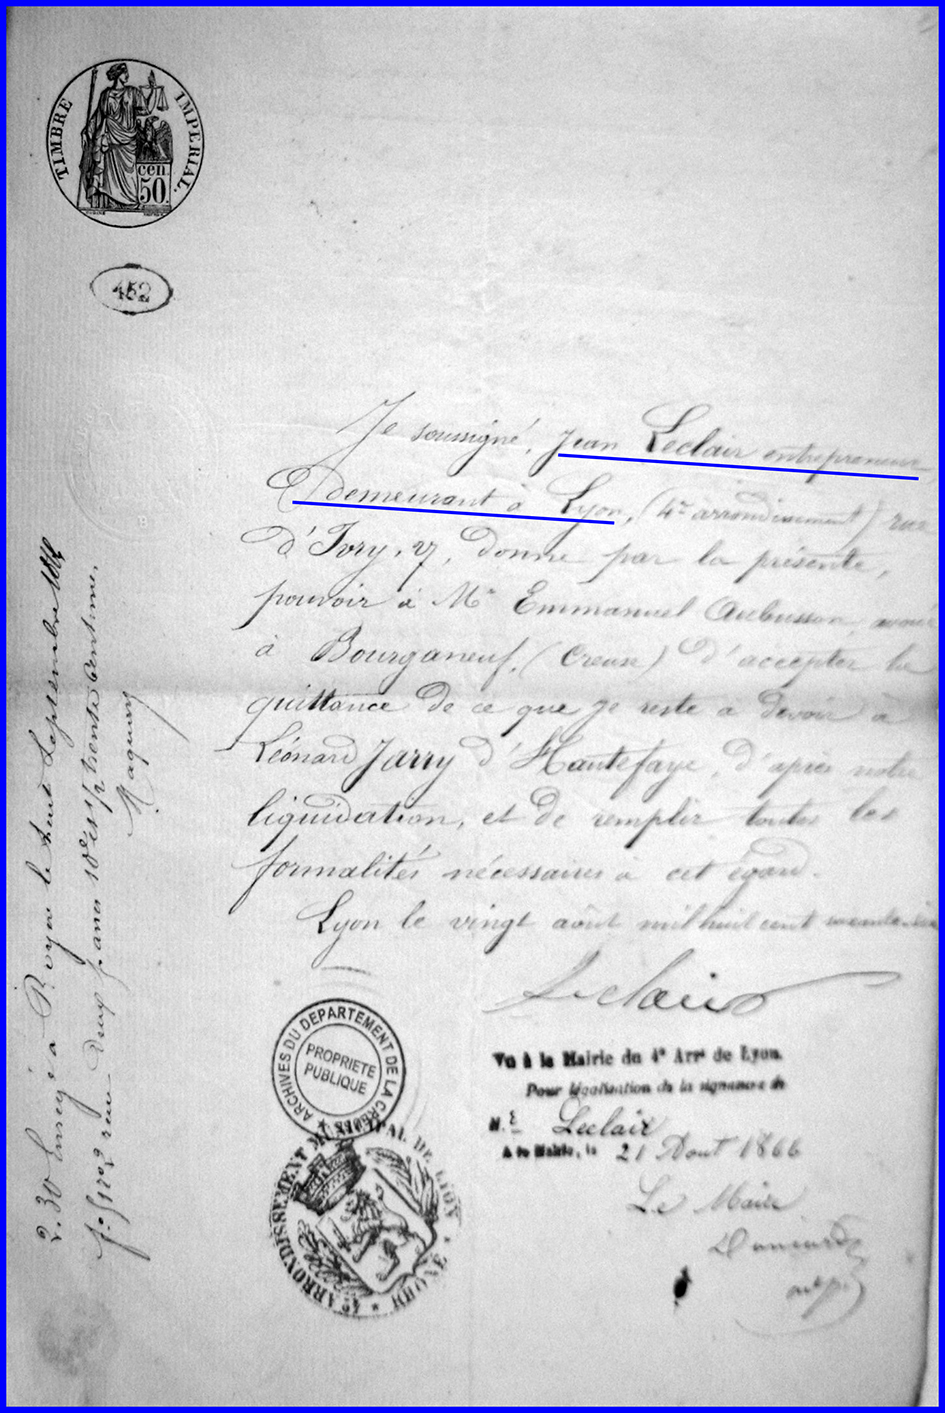 TIMBRE IMPERIAL.
cen.
50.
452
Je soussigné, Jean Leclair entrepreneur
Demeurant à Lyon, (4e arrondissement) rue
d'Ivry, 27, donne par la présente,
pouvoir à Mr Emmanuel Aubusson, avoué
à Bourganeuf, (Creuse) d'accepter la
quittance de ce que je reste à devoir à
Léonard Jarry d'Hautefaye, d'après notre
liquidation, et de remplir toutes les
formalités nécessaires à cet égard.
Lyon le vingt août mil huit cent soixante-six
Leclair
ARCHIVES DU DEPARTEMENT DE LA CREUSE
PROPRIETE
PUBLIQUE
Vu à la Mairie du 4e Arrt de Lyon.
Pour légalisation de la signature de
M.r Leclair
A la Mairie, le 21 Aout 1866
Le Maire
4e ARRONDISSEMENT MUNICIPAL DE LYON * RHONE *
2.30 Enregé à Royere le huit Septembre 1866
fo reçu deux francs 10es trente centimes.